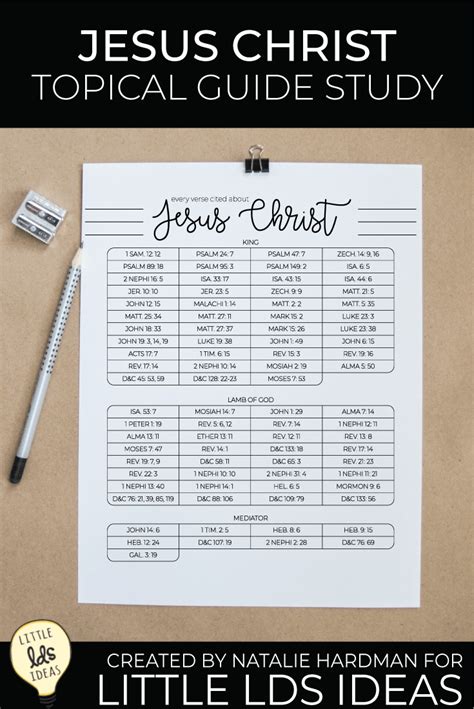 JESUS CHRIST
TOPICAL GUIDE STUDY
every verse cited about
Jesus Christ
KING
1 SAM. 12:12 PSALM 24: 7 PSALM 47: 7 ZECH. 14: 9, 16
PSALM 89: 18 PSALM 95: 3 PSALM 149: 2 ISA. 6: 5
2 NEPHI 16: 5 ISA. 33: 17 ISA. 43: 15 ISA. 44: 6
JER. 10: 10 JER. 23: 5 ZECH. 9: 9 MATT. 21: 5
JOHN 12: 15 MALACHI 1: 14 MATT. 2: 2 MATT. 5: 35
MATT. 25: 34 MATT. 27: 11 MARK 15: 2 LUKE 23: 3
JOHN 18: 33 MATT. 27: 29 MARK 15: 26 LUKE 23: 38
JOHN 19: 3, 14, 19 LUKE 19: 38 JOHN 1: 49 JOHN 6: 15
ACTS 17: 7 1 TIM. 6: 15 REV. 15: 3 REV. 17: 14
REV. 19: 16 2 NEPHI 10: 14 MOSIAH 2: 19 ALMA 5: 50
D&C 45: 53, 59 D&C 128: 22-23 MOSES 7: 53
LAMB OF GOD
ISA. 53: 7 MOSIAH 14: 7 JOHN 1: 29 ALMA 7: 14
1 PETER 1: 19 REV. 5: 6, 12 REV. 6: 1 REV. 7: 14
ALMA 13: 11 ETHER 13: 11 REV. 12: 11 REV. 14: 1
MOSES 7: 47 REV. 15: 3 REV. 13: 8 REV. 17: 14
REV. 19: 7, 9 D&C 58: 11 D&C 65: 3 REV. 21: 14
REV. 22: 1 1 NEPHI 10: 10 1 NEPHI 11: 21 2 NEPHI 31: 4
1 NEPHI 13: 40 1 NEPHI 14: 1 HEL. 6: 5 MORMON 9: 6
D&C 76: 21, 39, 85, 119 D&C 88: 106 D&C 109: 79 D&C 133: 55
MEDIATOR
JOHN 14: 6 1 TIM. 2: 5 HEB. 8: 6 HEB. 9: 15
HEB. 12: 24 D&C 107: 19 2 NEPHI 2: 28 D&C 76: 69
GAL. 3: 19
LITTLE
lds
IDEAS
CREATED BY NATALIE HARDMAN FOR
LITTLE LDS IDEAS